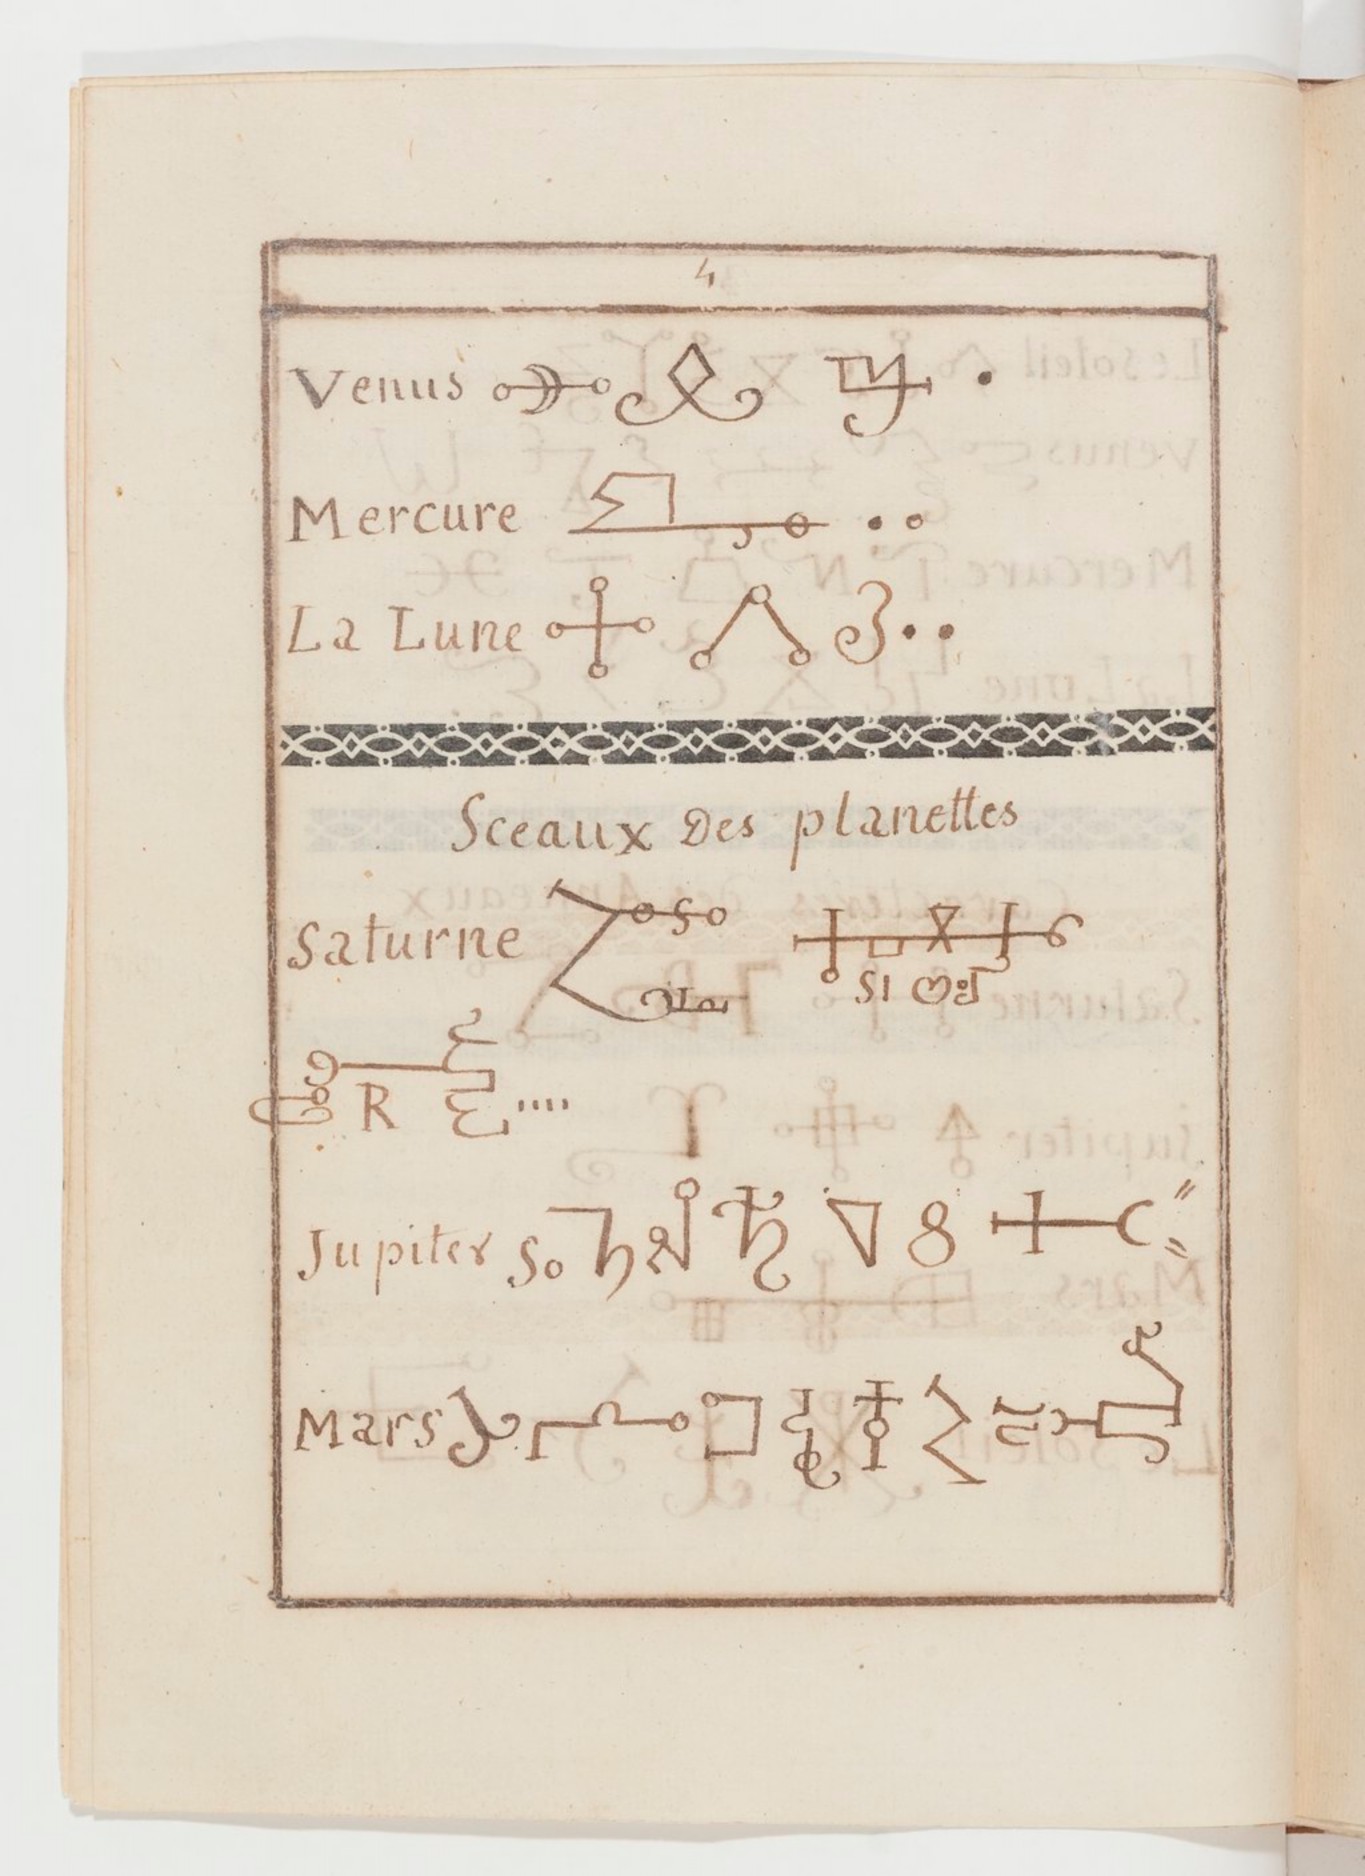 4
Venus
Mercure
La Lune
Sceaux Des planettes
Saturne
SI
R
Jupiter
Mars